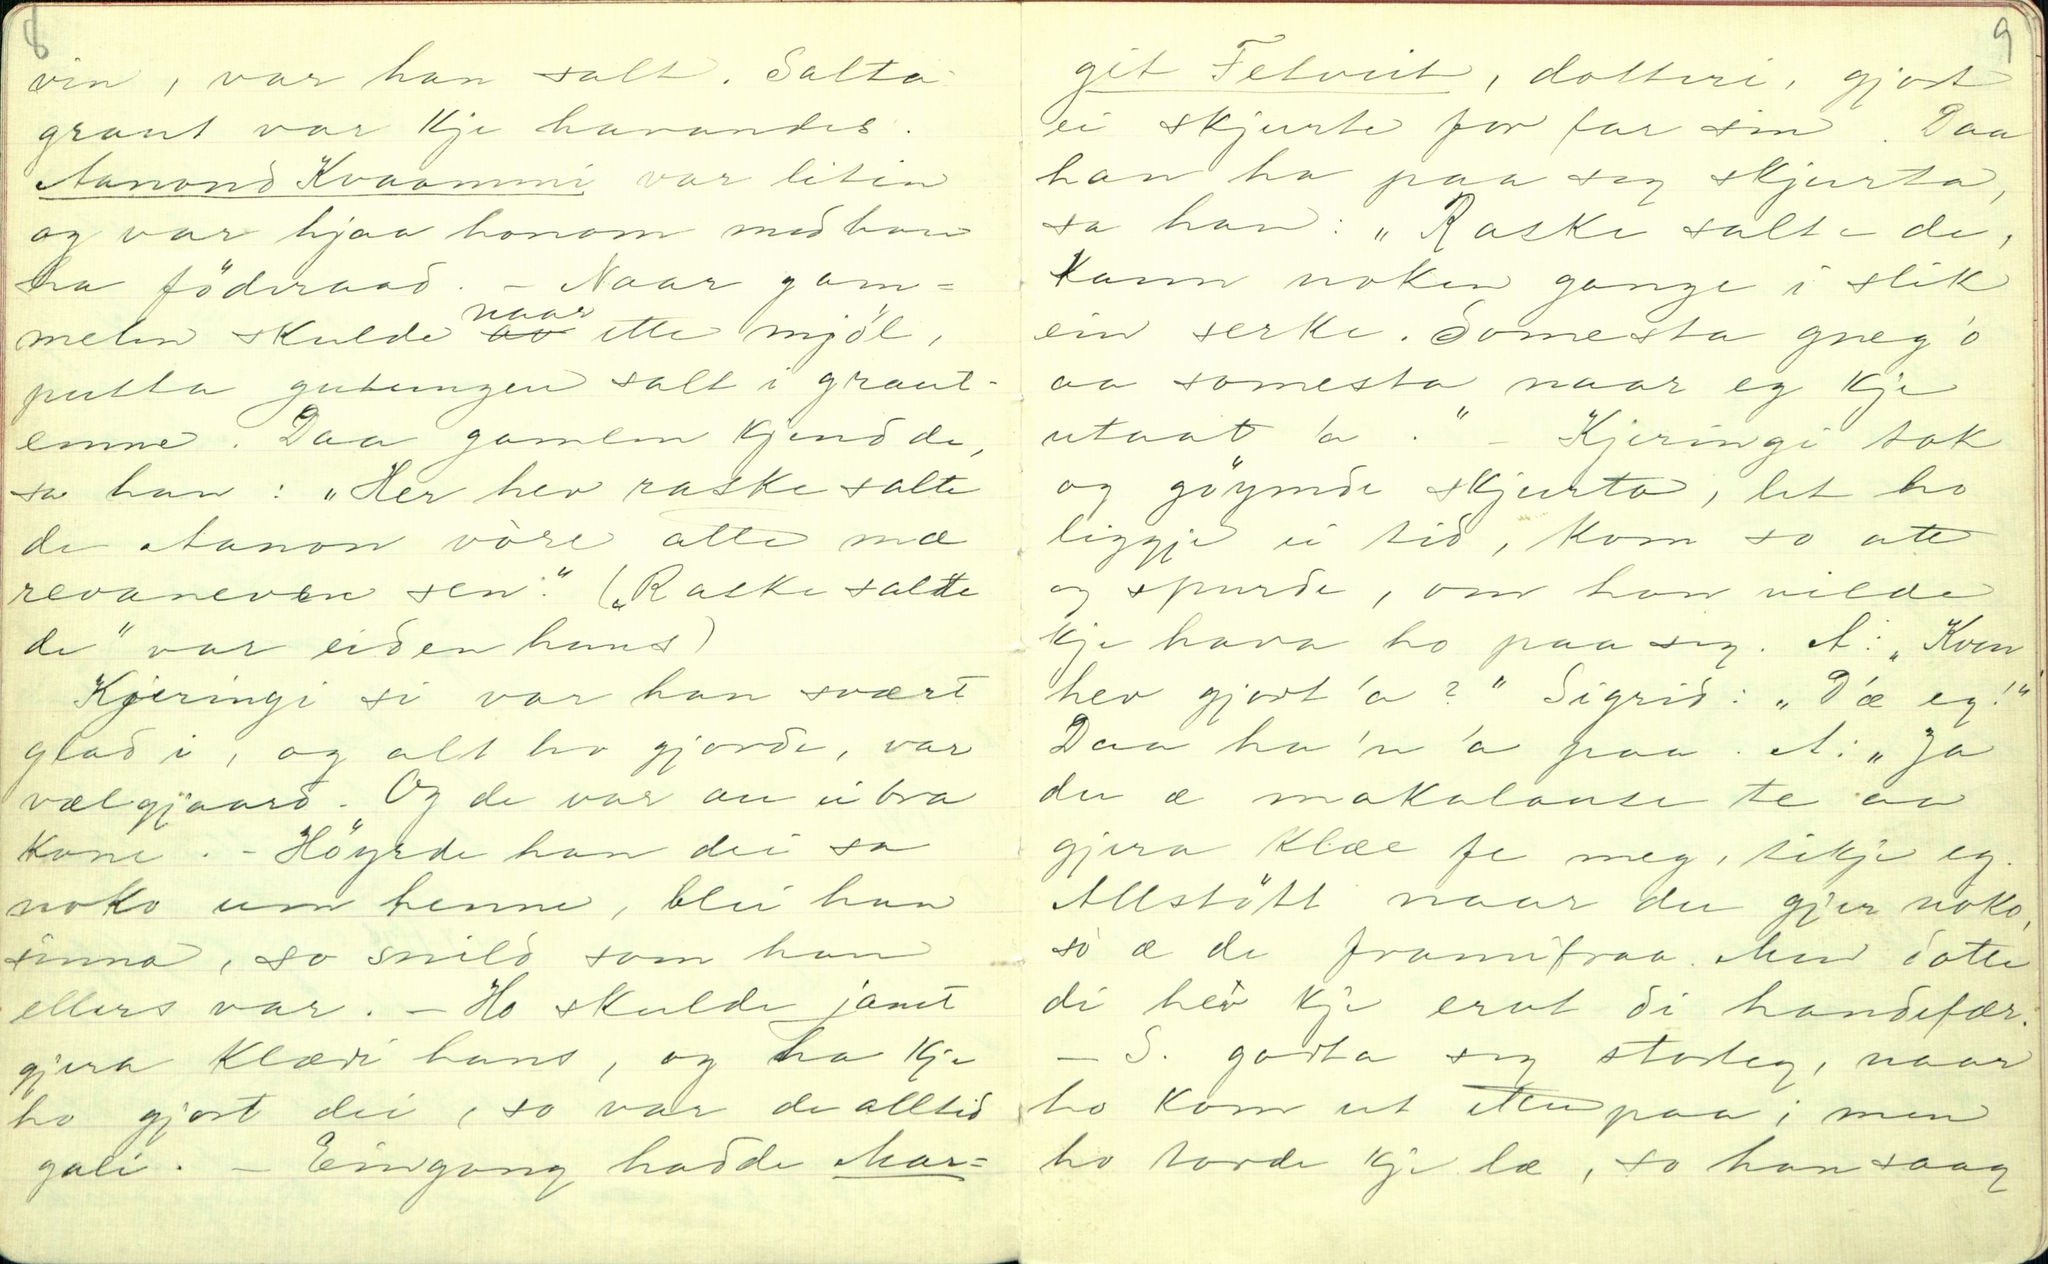 8
vin, var han salt. Salta
graut var kje havandes.
Aanond Kvaammi var liten
og var hjaa honom med han
ha föderaad. – Naar gam=
melen skulde naar ette mjöl,
putta gutungen salt i graut-
emne. Daa gamlen kjende de,
sa han: "Her hev raske salte
de Aanon vòre atte mæ
revaneven sen." ("Raske salte
de" var eiden hans)
Kjeringi si var han svært
glad i, og alt ho gjorde, var
vælgjaard. Og de var au ei bra
kone. – Höyrde han dei sa
noko um henne, blei han
sinna, so snild som han
ellers var. – Ho skulde jamt
gjera klædi hans, og ha kje
ho gjort dei, so var de alltid
gali. – Eingang hadde Mar=
9
git Fetveit, dotteri, gjort
ei skjurte for far sin. Daa
han ha paa seg skjurta,
sa han: "Raske salt-de,
kann noken gange i slik
ein serke. Somesta gneg'o
aa somesta naar eg kje
utaat 'a." – Kjeringi tok
og göymde skjurta, let ho
liggje ei tid, kom so att
og spurde, om han vilde
kje hava ho paa seg. A: "Kven
hev gjort 'a?" Sigrid: "D'æ eg!"
Daa ha 'n 'a paa. A: "Ja
du æ makalause te aa
gjera klæe fe meg, tikje eg.
Allstött naar du gjer noko,
so æ de framifraa. Men dotte
di hev kje ervt di handefær.
– S. godta seg storleg, naar
ho kom ut ettepaa; men
ho torde kje læ, so han saag